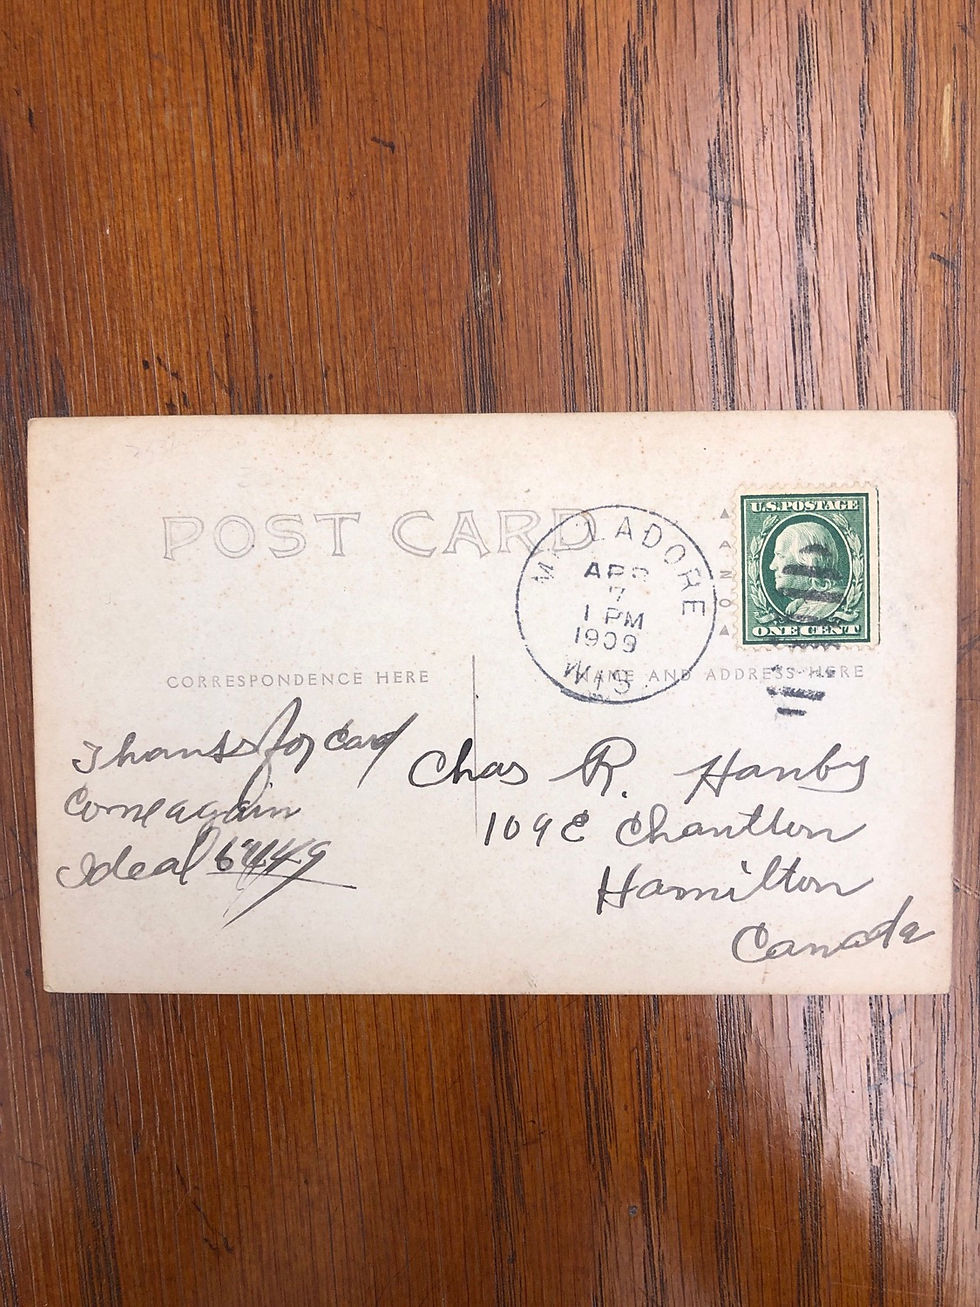 POST CARD
MILLADORE
APR
7
1 PM
1909
WIS.
U.S. POSTAGE
ONE CENT
CORRESPONDENCE HERE
NAME AND ADDRESS HERE
Thanks for Card
Come again
Ideal
Chas R. Hanby
109 E
Hamilton
Canada